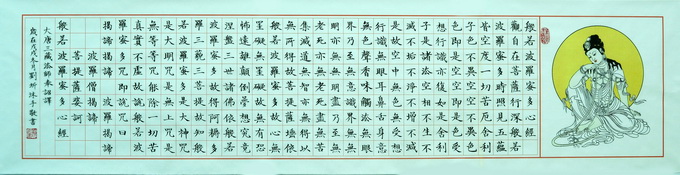 般若波羅蜜多心經
觀自在菩薩行深般若
波羅蜜多時照見五蘊
皆空度一切苦厄舍利
子色不異空空不異色
色即是空空即是色受
想行識亦復如是舍利
子是諸法空相不生不
滅不垢不淨不增不減
是故空中無色無受想
行識無眼耳鼻舌身意
無色聲香味觸法無眼
界乃至無意識界無無
明亦無無明盡乃至無
老死亦無老死盡無苦
集滅道無智亦無得以
無所得故菩提薩埵依
般若波羅蜜多故心無
罣礙無罣礙故無有恐
怖遠離顛倒夢想究竟
涅盤三世諸佛依般若
波羅蜜多故得阿耨多
羅三藐三菩提故知般
若波羅蜜多是大神咒
是大明咒是無上咒是
無等等咒能除一切苦
真實不虛故說般若波
羅蜜多咒即說咒曰
揭諦揭諦 波羅揭諦
波羅僧揭諦
菩提薩婆訶
般若波羅蜜多心經
大唐三藏法師玄奘譯
歲在戊戌冬月劉沐手敬書